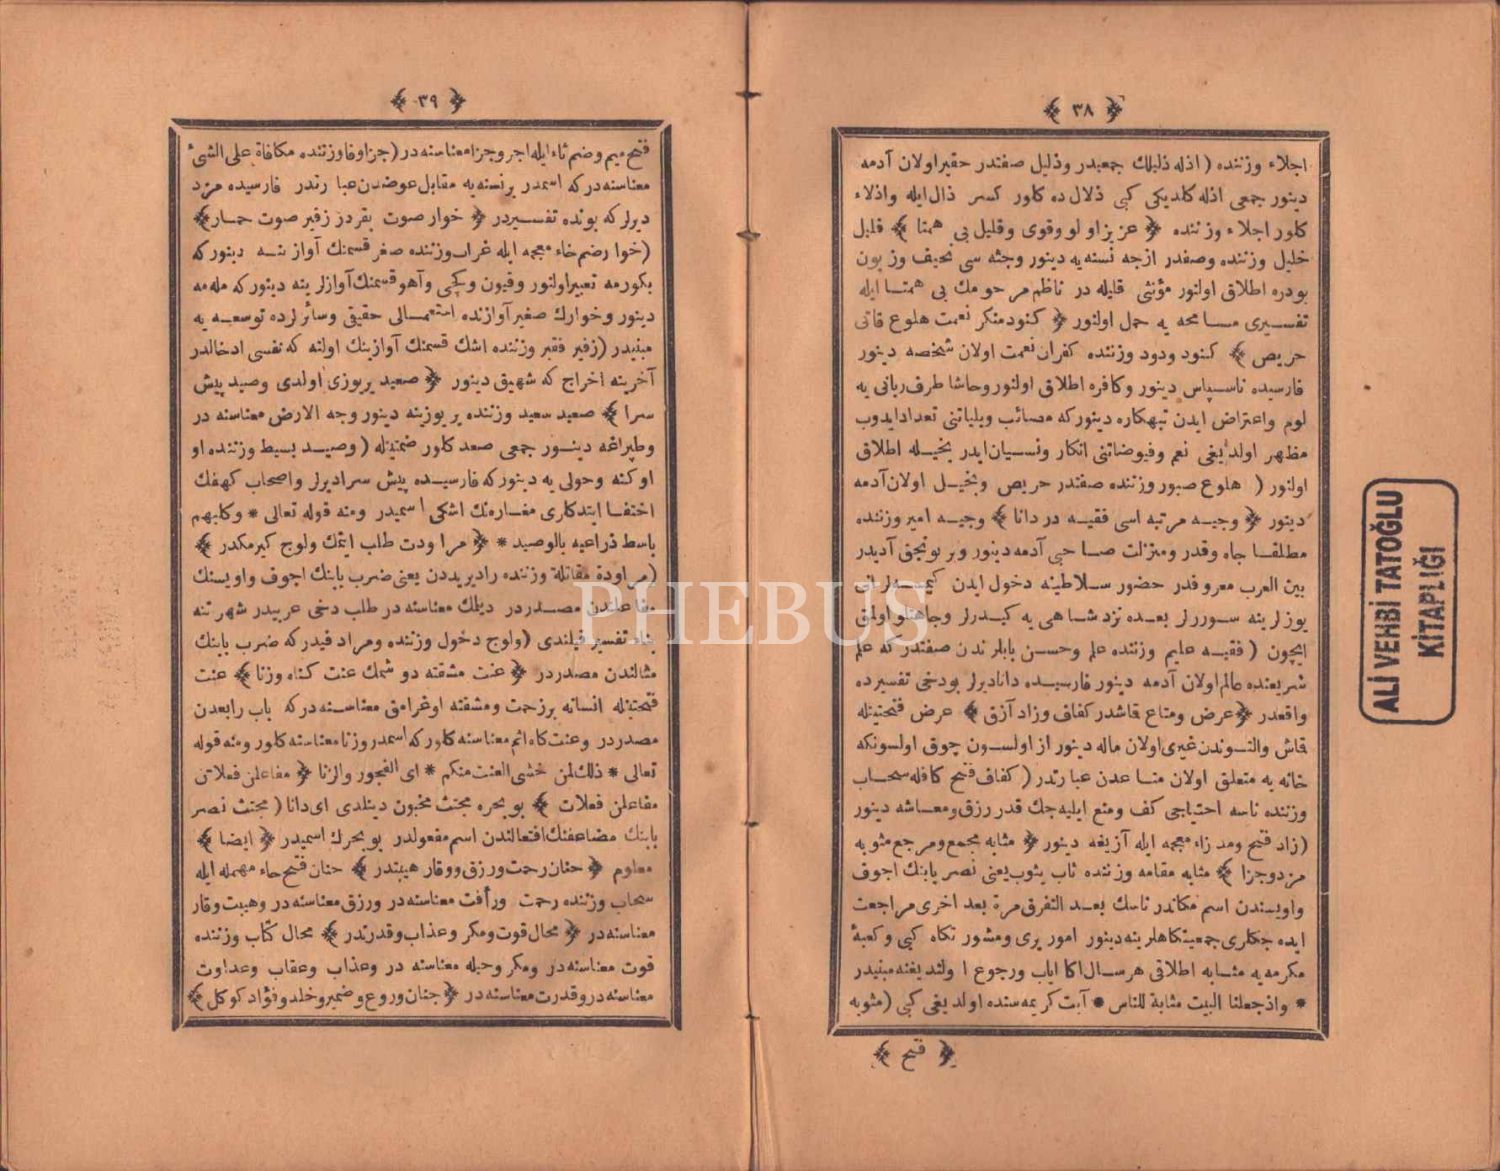 ﴿ ٣٨ ﴾
اجلاء وزننده ( اذله ذليلك جمعيدر وذليل صفتدر حقير اولان آدمه
دينور جمعى اذله كلديكى كبى ذلال ده كلور كسر ذال ايله واذلاء
كلور اجلاء وزننده ﴿ عزيز او لو وقوى وقليل بى همتا ﴾ قليل
خليل وزننده وصفدر ازجه نسنه يه دينور وجثه سى نحيف وزبون
بودره اطلاق اولنور مؤنثى قليله در ناظم مرحومك بى همتا ايله
تفسيرى مسامحه يه حمل اولنور ﴿ كنود منكر نعمت هلوع قاتى
حريص ﴾ كنود ودود وزننده كفران نعمت اولان شخصه دينور
فارسيده ناسپاس دينور وكافره اطلاق اولنور وحاشا طرف ربانى يه
لوم واعتراض ايدن تبهكاره دينور كه مصائب وبلياتنى تعداد ايدوب
مظهر اولديغى نعم وفيوضاتنى انكار ونسيان ايدر بخيله اطلاق
اولنور ( هلوع صبور وزننده صفتدر حريص وبخيل اولان آدمه
دينور ﴿ وجيه مرتبه اسى فقيه در دانا ﴾ وجيه امير وزننده
مطلقا جاه وقدر ومنزلت صاحبى آدمه دينور وبر بونجق آديدر
بين العرب معروفدر حضور سلاطينه دخول ايدن كيمسه لر انى
يوزلرينه سوررلر بعده نزد شاهى يه كيدرلر وجاهتلو اولمق
ايچون ( فقيه عليم وزننده علم وحسن بابلرندن صفتدر كه علم
شريعتده عالم اولان آدمه دينور فارسيده دانا ديرلر بودخى تفسيرده
واقعدر ﴿ عرض ومتاع قاشدر كفاف وزاد آزق ﴾ عرض فتحتينله
قاش والتوندن غيرى اولان ماله دينور از اولسون چوق اولسونكه
خانه يه متعلق اولان متاعدن عبارتدر ( كفاف فتح كافله سحاب
وزننده ناسه احتياجى كف ومنع ايليه جك قدر رزق ومعاشه دينور
( زاد فتح ومد زاء معجمه ايله آزيغه دينور ﴿ مثابه مجمع ومرجع مثوبه
مزد وجزا ﴾ مثابه مقامه وزننده ثاب يثوب يعنى نصر بابنك اجوف
واويسندن اسم مكاندر ناسك بعد التفرق مرة بعد اخرى مراجعت
ايده جكلرى جمعيتكاهلرينه دينور امور يرى ومشور تكاه كبى وكعبۀ
مكرمه يه مثابه اطلاقى هر سال اكا اياب ورجوع اولنديغنه مبنيدر
* واذ جعلنا البيت مثابة للناس * آيت كريمه سنده اولديغى كبى ( مثوبه
﴿ فتح ﴾
﴿ ٣٩ ﴾
فتح ميم وضم ثاء ايله اجر وجزا معناسنه در ( جزا وفا وزننده مكافاة على الشئ
معناسنه در كه اسمدر بر نسنه يه مقابل عوضدن عبارتدر فارسيده مزد
ديرلر كه بونده تفسيردر ﴿ خوار صوت بقر در زفير صوت حمار ﴾
( خوار ضم خاء معجمه ايله غراب وزننده صغر قسمنك آوازينه دينور كه
بكورمه تعبير اولنور وقيون وكچى وآهو قسمنك آوازلرينه دينور كه مله مه
دينور وخوارك صغير آوازنده استعمالى حقيقى وسائرلرده توسعه يه
مبنيدر ( زفير فقير وزننده اشك قسمنك آوازينك اولنه كه نفسى ادخالدر
آخرينه اخراج كه شهيق دينور ﴿ صعيد ير يوزى اولدى وصيد پيش
سرا ﴾ صعيد سعيد وزننده ير يوزينه دينور وجه الارض معناسنه در
وطپراغه دينور جمعى صعد كلور ضمتينله ( وصيد بسيط وزننده او
اوكنه وحولى يه دينور كه فارسيده پيش سرا ديرلر واصحاب كهفك
اختفا ايتدكلرى مغاره نك اشكى اسميدر ومنه قوله تعالى * وكلبهم
باسط ذراعيه بالوصيد * ﴿ مراودت طلب ايتمك ولوج كيرمكدر ﴾
( مراودة مقاتلة وزننده راد يريددن يعنى ضرب بابنك اجوف واويسنك
مفاعلندن مصدردر ديلك معناسنه در طلب دخى عربيدر شهرتنه
بناء تفسير قيلندى ( ولوج دخول وزننده ومراد فيدر كه ضرب بابنك
مثالندن مصدردر ﴿ عنت مشقته دوشمك عنت كناه وزنا ﴾ عنت
فتحتينله انسانه بر زحمت ومشقته اوغرامق معناسنه در كه باب رابعدن
مصدردر وعنت كاه اثم معناسنه كلور كه اسمدر وزنا معناسنه كلور ومنه قوله
تعالى * ذلك لمن خشى العنت منكم * اى الفجور والزنا ﴿ مفاعلن فعلاتن
مفاعلن فعلات ﴾ بو بحره مجتث مخبون دينلدى اى دانا ( مجتث نصر
بابنك مضاعفنك افتعالندن اسم مفعولدر بو بحرك اسميدر ﴿ ايضا ﴾
معلوم ﴿ حنان رحمت ورزق ووقار هيبتدر ﴾ حنان فتح حاء مهمله ايله
سحاب وزننده رحمت ورأفت معناسنه در ورزق معناسنه در وهيبت ووقار
معناسنه در ﴿ محال قوت ومكر وعذاب وقدرتدر ﴾ محال كتاب وزننده
قوت معناسنه در ومكر وحيله معناسنه در وعذاب وعقاب وعداوت
معناسنه در وقدرت معناسنه در ﴿ جنان وروع وضمير وخلد وفؤاد كوكل ﴾
ALİ VEHBİ TATOĞLU
KİTAPLIĞI
PHEBUS